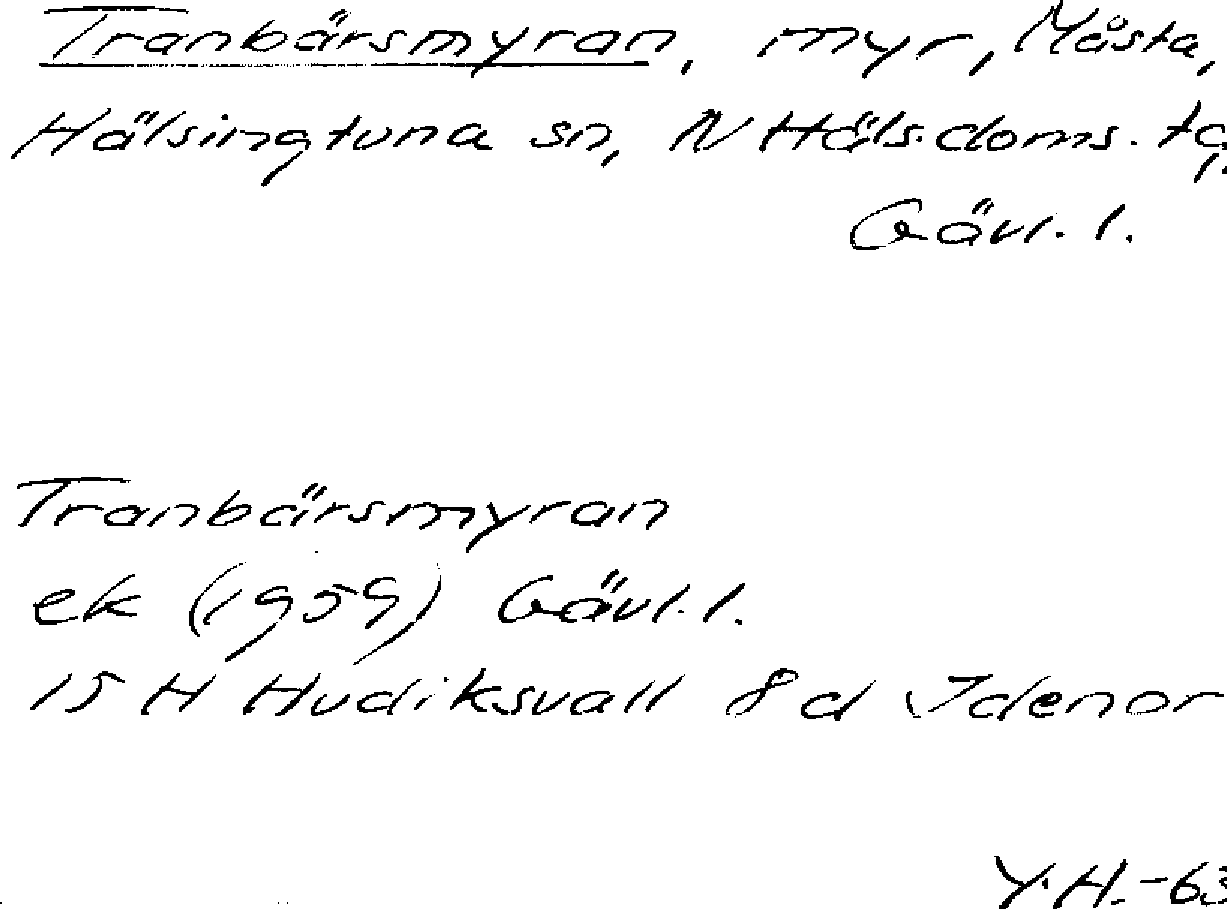 Tranbärsmyran, myr, Måsta,
Hälsingtuna sn, N Häls. doms. tg,
Gävl. l.
Tranbärsmyran
ek (1959) Gävl. l.
15 H Hudiksvall 8 d Idenor
Y.H.-63